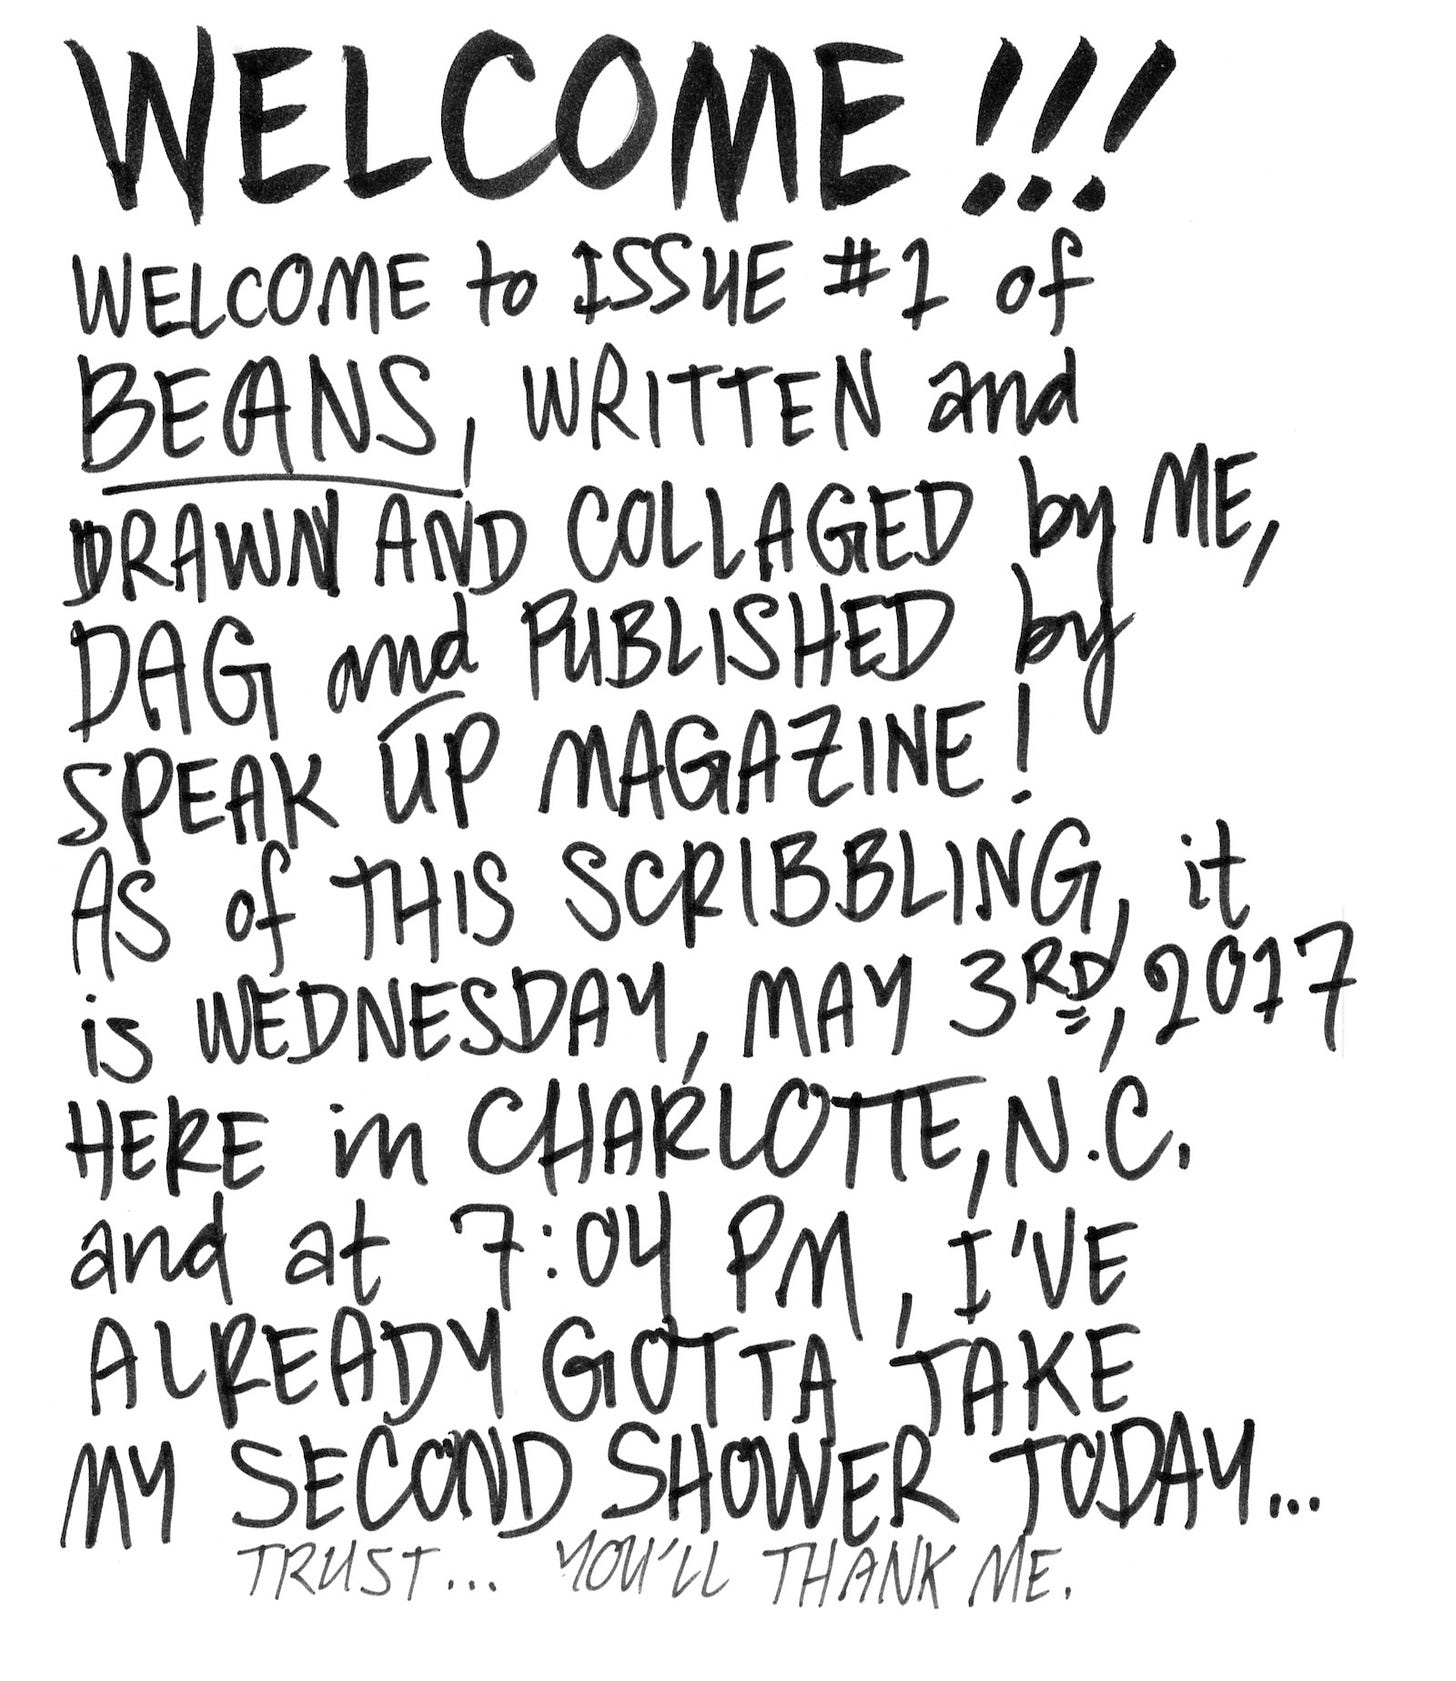 WELCOME!!!
WELCOME to ISSUE #1 of
BEANS, WRITTEN and
DRAWN AND COLLAGED by ME,
DAG and PUBLISHED by
SPEAK UP MAGAZINE!
AS of THIS SCRIBBLING, it
is WEDNESDAY, MAY 3RD, 2017
HERE in CHARLOTTE, N.C.
and at 7:04 PM, I'VE
ALREADY GOTTA TAKE
MY SECOND SHOWER TODAY...
TRUST... YOU'LL THANK ME.